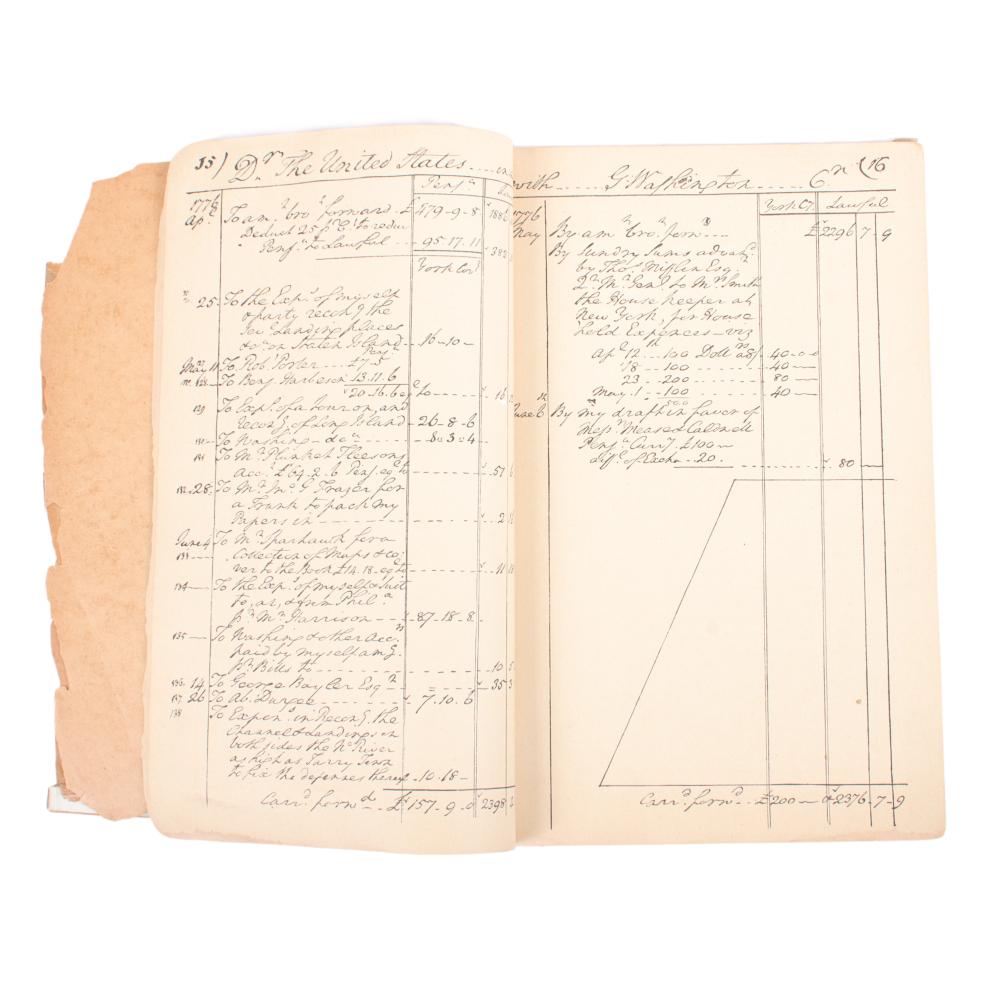 15) Dr The United States .... in
Pensa
1776
Apl To amt brot forward £ 479-9-8
Deduct 25 pCt to reduce
Pensa to Lawful ... 95.17.11
York Cur
25 To the Expe of myself
& party recong the
Landing places
&ca on Staten Island 16-10-
May 11 To Robt Porter £7.5
To Benj Harbeson 13.11.6
20.16.6
129 To Expe of a tour on, and
recong of Long Island 26-8-6
To Washing &ca 8-3-4
131 To Mr Plunket Fleesons
Acct £64.2.6 Pensa eql to 57
132 28 To Mr G Frazer for
a Trunk to pack my
Papers in 2
June 4 To Mr Sparhawk for a
133 Collection of Maps & co-
ver to the Book £14.18 eql to 11
134 To the Expe of myself & Suit
to, at, & from Phila
pr Mr Harrison 87-18-8
135 To Washing & other Acc
paid by myself
pr Bills to 10
136 14 To George Baylor Esqr 35 3
137 26 To Ab: Duryee 7.10.6
138 To Expens in Recong the
Channel & Landings on
both sides the No River
as high as Tarry Town
to fix the defenses thereof 10-18-
Carrd forwd £157-9-0 2398
with .... G Washington .... Cr (16
York Cy Lawful
1776
May By amt brot forwd £2296 7-9
By Sundry Sums advancd
by Thos Mifflin Esq
Qr Mr Genl to Mrs Smith
the House keeper at
New York, for House
hold Expences - viz
Apl 12th 100 Dollars 40-0-0
18 - 100 40
23 - 200 80
May 1 - 100 40
500
June 6 By my draft in favor of
Messrs Mease & Caldwell
Pensa Curry £100
diffe of Excha .. 20. 80
Carrd forwd £200 - 0 2376-7-9